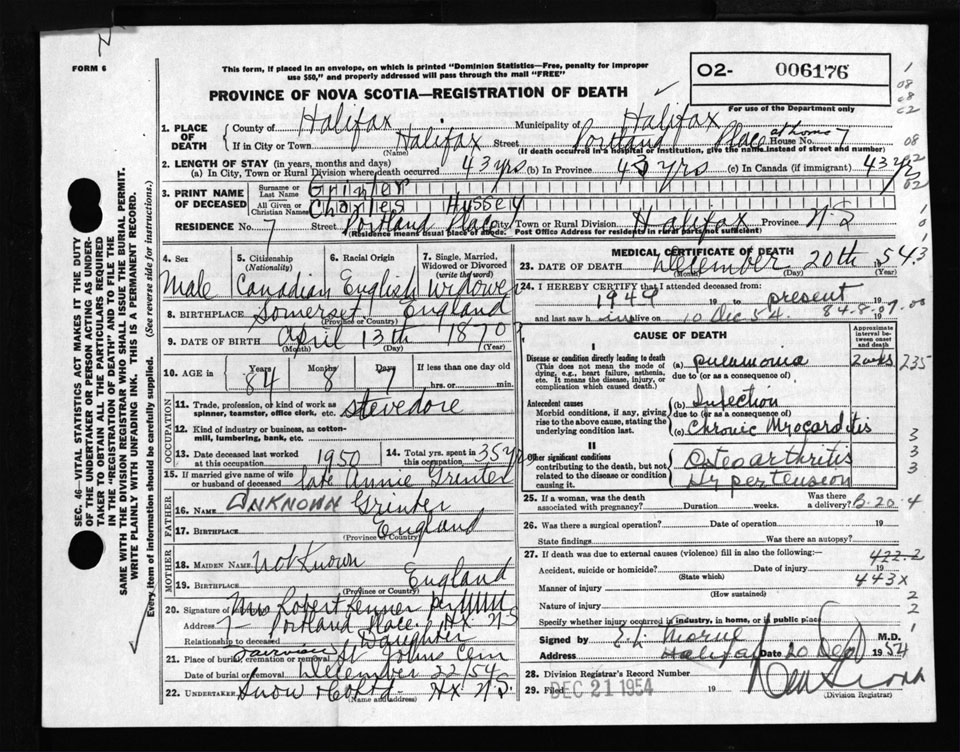 FORM 6
This form, if placed in an envelope, on which is printed "Dominion Statistics—Free, penalty for improper
use $50," and properly addressed will pass through the mail "FREE"
PROVINCE OF NOVA SCOTIA—REGISTRATION OF DEATH
O2- 006176
For use of the Department only
SEC. 46—VITAL STATISTICS ACT MAKES IT THE DUTY
OF THE UNDERTAKER OR PERSON ACTING AS UNDER-
TAKER TO OBTAIN ALL THE PARTICULARS REQUIRED
IN THE "REGISTRATION OF DEATH" AND TO FILE THE
SAME WITH THE DIVISION REGISTRAR WHO SHALL ISSUE THE BURIAL PERMIT.
WRITE PLAINLY WITH UNFADING INK. THIS IS A PERMANENT RECORD.
Every item of information should be carefully supplied. (See reverse side for instructions.)
1. PLACE OF DEATH
County of Halifax Municipality of Halifax
If in City or Town Halifax Street Portland Place House No. 7 at home
(Name) (If death occurred in a hospital or institution, give the name instead of street and number)
2. LENGTH OF STAY (in years, months and days)
(a) In City, Town or Rural Division where death occurred 43 yrs (b) In Province 43 yrs (c) In Canada (if immigrant) 43 yrs
3. PRINT NAME OF DECEASED
Surname or Last Name Grinter
All Given or Christian Names Charles Hussey
RESIDENCE No. 7 Street Portland Place City Town or Rural Division Halifax Province N S
(Residence means usual place of abode. Post Office Address for residents in rural parts not sufficient)
4. Sex 5. Citizenship (Nationality) 6. Racial Origin 7. Single, Married, Widowed or Divorced (write the word)
Male Canadian English widower
8. BIRTHPLACE Somerset England
(Province or Country)
9. DATE OF BIRTH April 13th 1870
(Month) (Day) (Year)
10. AGE in Years 84 Months 8 Days 7 If less than one day old hrs. or min.
OCCUPATION
11. Trade, profession, or kind of work as
spinner, teamster, office clerk, etc. Stevedore
12. Kind of industry or business, as cotton-
mill, lumbering, bank, etc.
13. Date deceased last worked at this occupation 1950 14. Total yrs. spent in this occupation 35 yrs
15. If married give name of wife
or husband of deceased late Annie Grinter
FATHER
16. NAME UNKNOWN Grinter
17. BIRTHPLACE England
(Province or Country)
MOTHER
18. MAIDEN NAME Not Known
19. BIRTHPLACE England
(Province or Country)
20. Signature of Mrs Robert Renner per
Address 7 - Portland Place. Hx N S
Relationship to deceased Daughter
21. Place of burial, cremation or removal Fairview St Johns Cem
Date of burial or removal December 22 54
22. UNDERTAKER Snow & Co Ltd. Hx N.S.
(Name and address)
MEDICAL CERTIFICATE OF DEATH
23. DATE OF DEATH December 20th 54
(Month) (Day) (Year)
24. I HEREBY CERTIFY that I attended deceased from:
1949 19 to present 19
and last saw h im alive on 10 Dec 54 19
84.8.07.00
CAUSE OF DEATH
Approximate interval between onset and death
I
Disease or condition directly leading to death
(This does not mean the mode of dying, e.g., heart failure, asthenia, etc. It means the disease, injury, or complication which caused death.)
(a) pneumonia 2 wks
235
due to (or as a consequence of)
Antecedent causes
Morbid conditions, if any, giving rise to the above cause, stating the underlying condition last.
(b) Infection
due to (or as a consequence of)
(c) Chronic Myocarditis
II
Other significant conditions
contributing to the death, but not related to the disease or condition causing it.
Osteoarthritis
Hypertension
25. If a woman, was the death associated with pregnancy? Duration weeks. Was there a delivery? B-20-4
26. Was there a surgical operation? Date of operation 19
State findings Was there an autopsy?
27. If death was due to external causes (violence) fill in also the following:—
422.2
Accident, suicide or homicide? Date of injury 19
(State which) 443x
Manner of injury
(How sustained)
Nature of injury
Specify whether injury occurred in industry, in home, or in public place
Signed by M.D.
Address Halifax Date 20 Dec 1954
28. Division Registrar's Record Number
29. Filed DEC 21 1954 19
(Division Registrar)